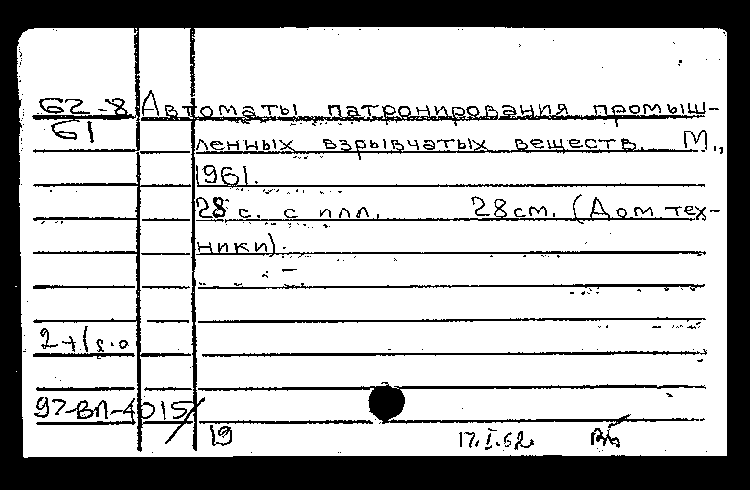 62-8 Автоматы патронирования промыш-
61 ленных взрывчатых веществ. М.,
1961.
28 с. с илл. 28 см. (Дом тех-
ники).
97-ВП-4015/
19 17.I.62.